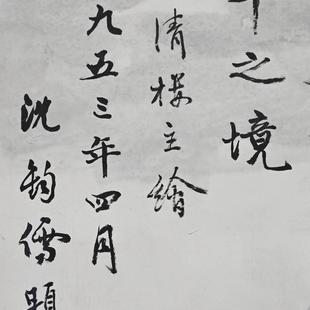 之境
清樓主繪
九五三年四月
沈鈞儒題